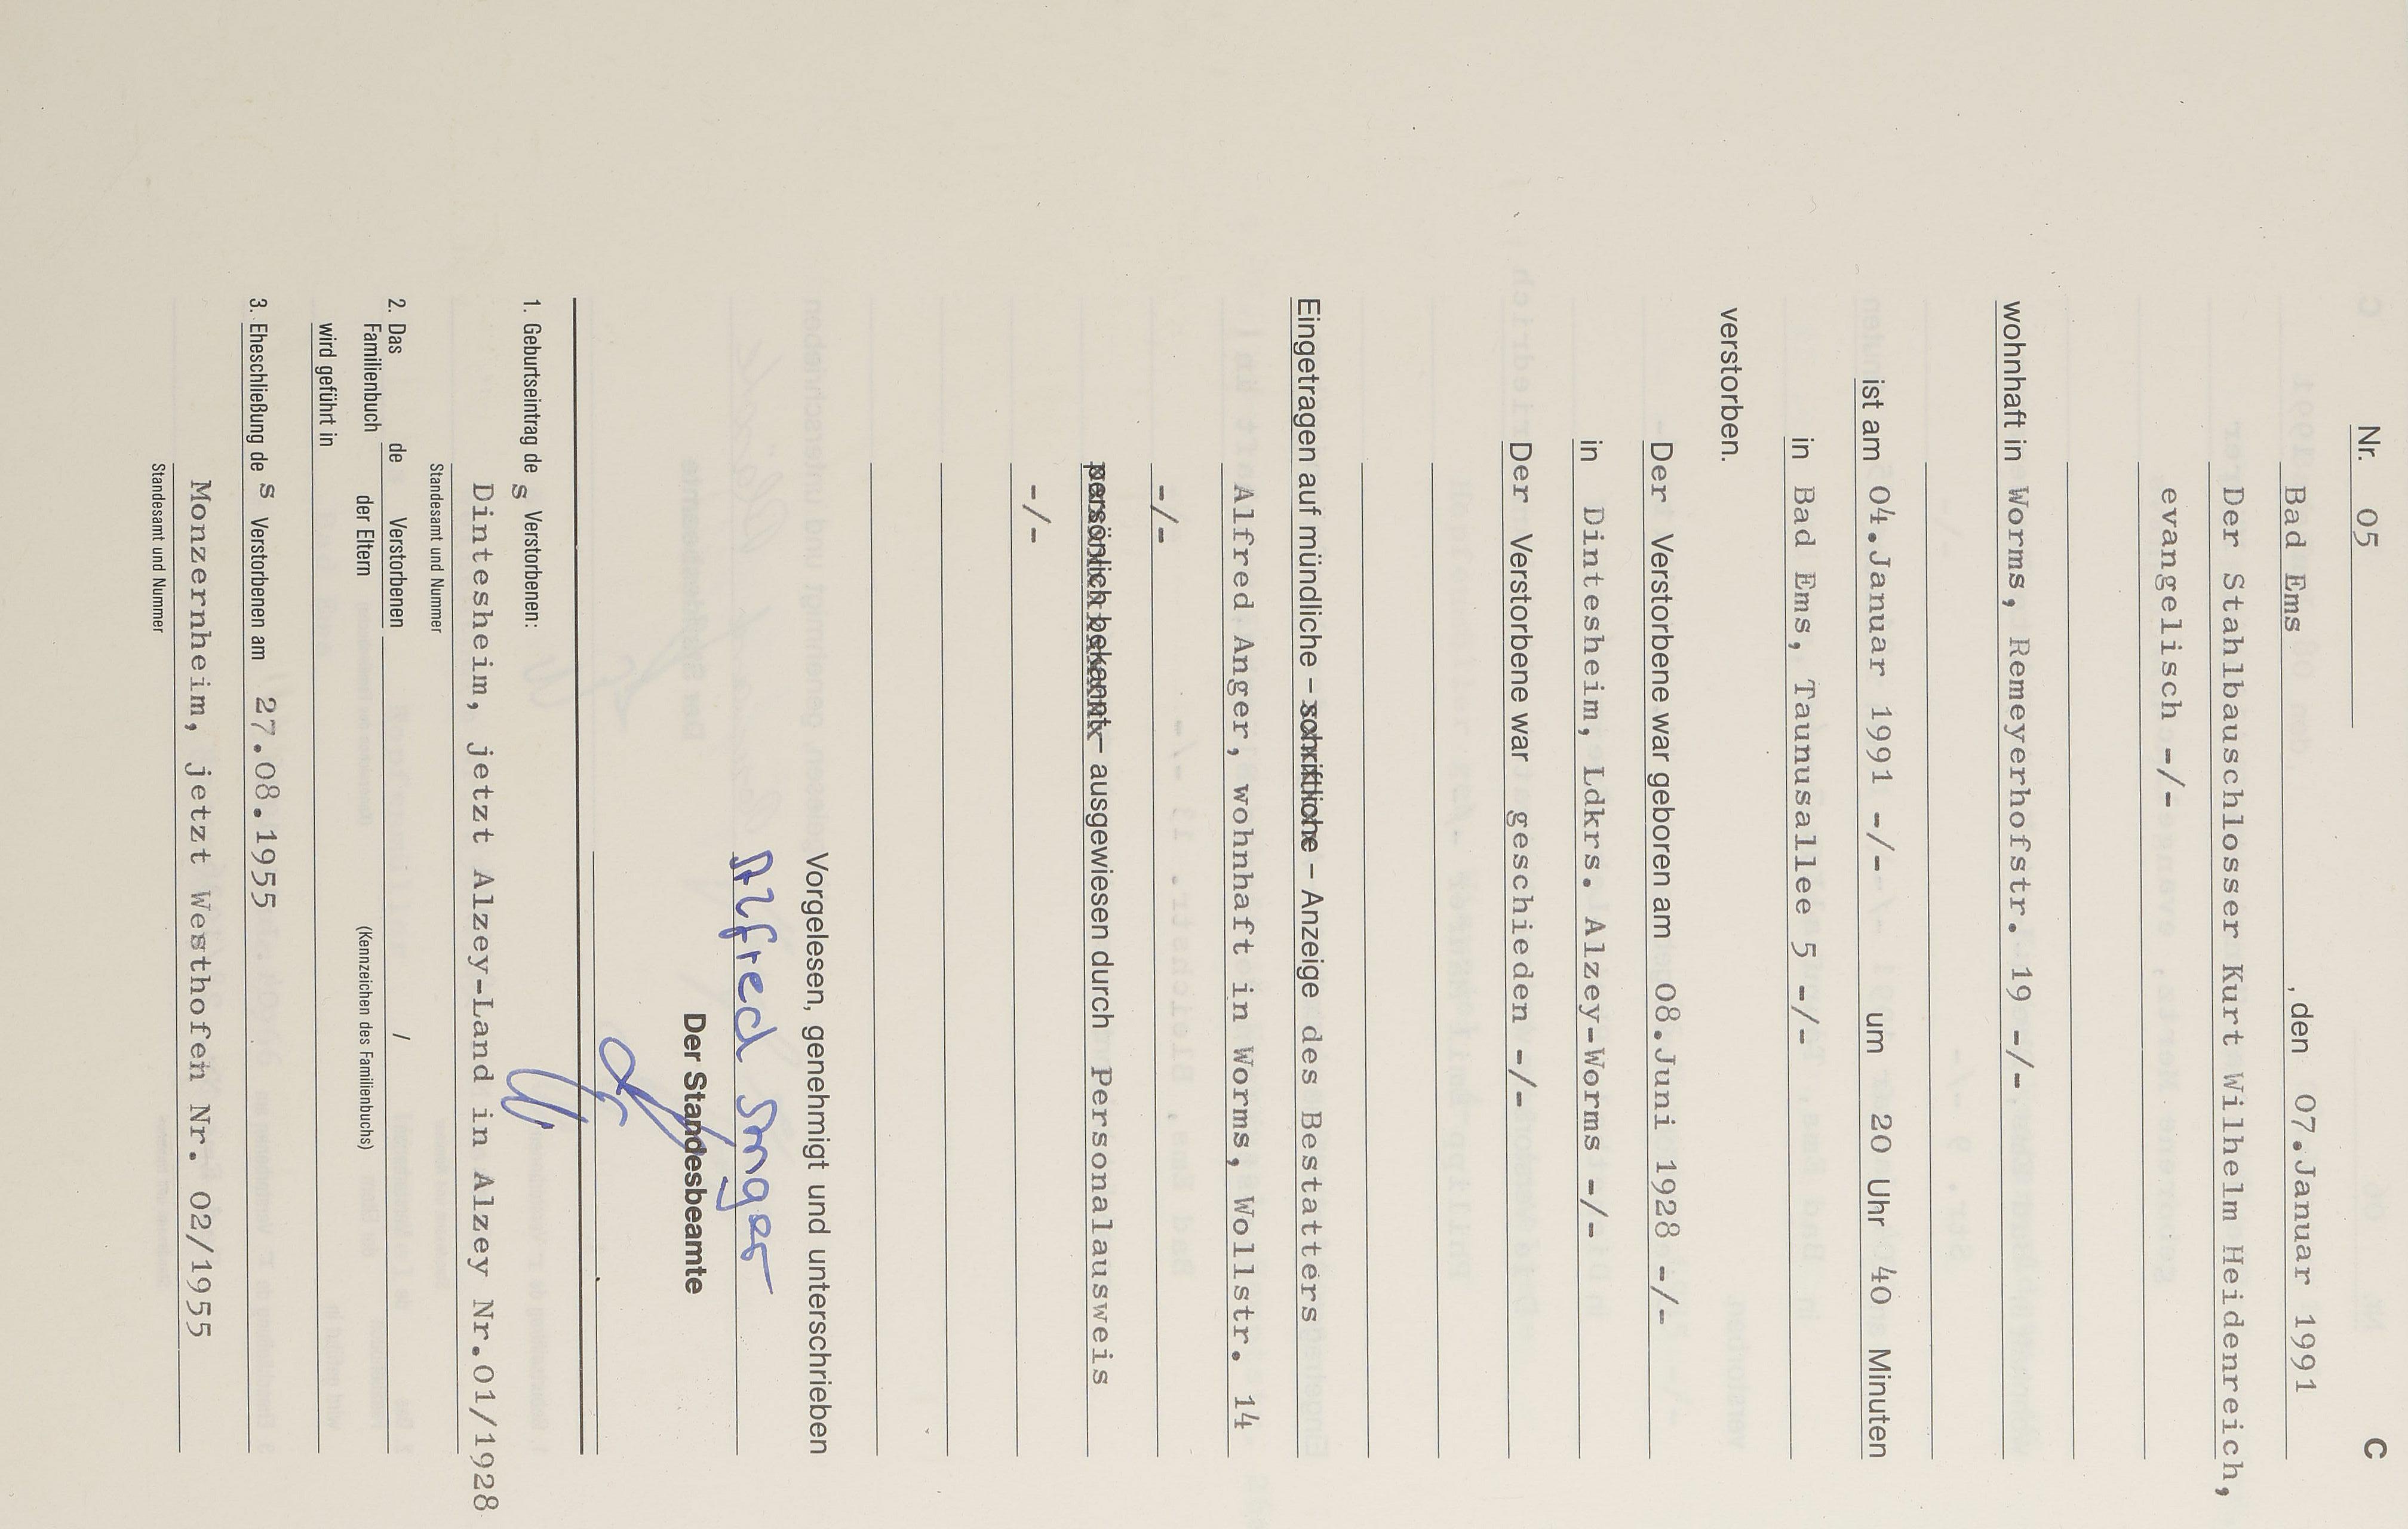 C
Nr. 05
Bad Ems , den 07.Januar 1991
Der Stahlbauschlosser Kurt Wilhelm Heidenreich,
evangelisch -/-
wohnhaft in Worms, Remeyerhofstr. 19 -/-
ist am 04.Januar 1991 -/- um 20 Uhr 40 Minuten
in Bad Ems, Taunusallee 5 -/-
verstorben.
Der Verstorbene war geboren am 08.Juni 1928 -/-
in Dintesheim, Ldkrs. Alzey-Worms -/-
Der Verstorbene war geschieden -/-
Eingetragen auf mündliche – schriftliche – Anzeige des Bestatters
Alfred Anger, wohnhaft in Worms, Wollstr. 14
-/-
persönlich bekannt – ausgewiesen durch Personalausweis
-/-
Vorgelesen, genehmigt und unterschrieben
Alfred Anger
Der Standesbeamte
1. Geburtseintrag des Verstorbenen:
Dintesheim, jetzt Alzey-Land in Alzey Nr.01/1928
Standesamt und Nummer
2. Das Familienbuch de Verstorbenen /
der Eltern (Kennzeichen des Familienbuchs)
wird geführt in
3. Eheschließung des Verstorbenen am 27.08.1955
Monzernheim, jetzt Westhofen Nr. 02/1955
Standesamt und Nummer